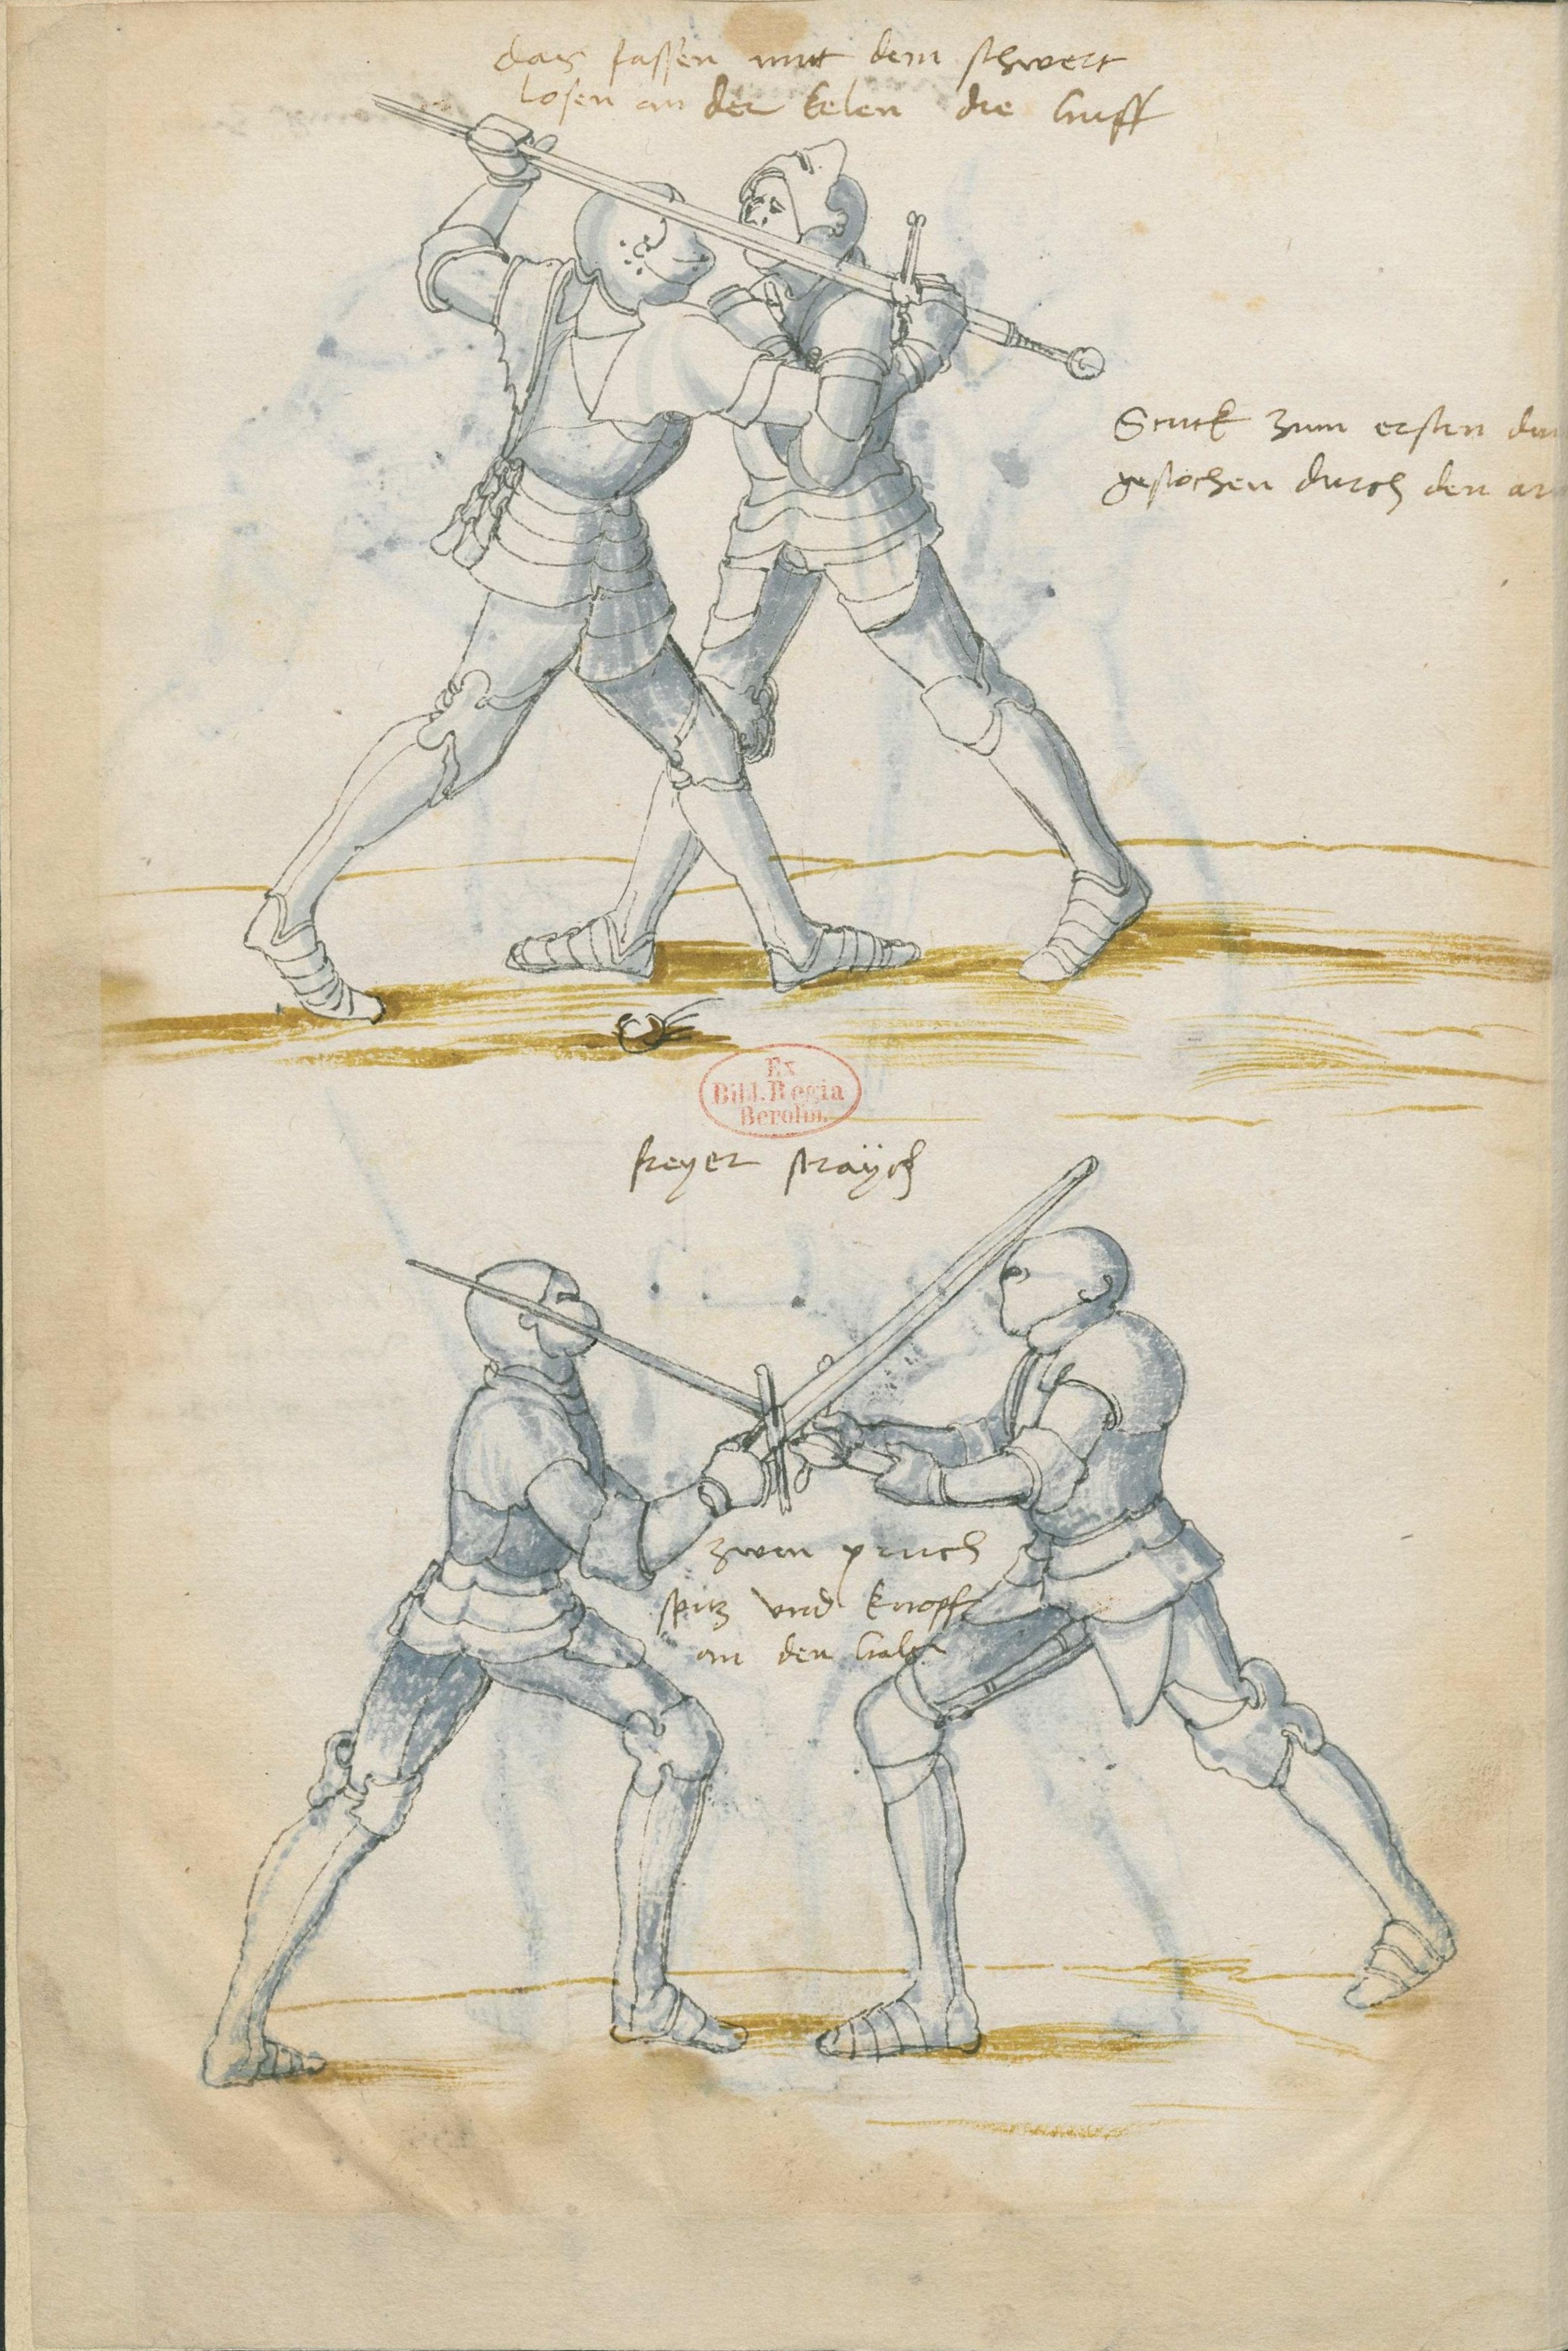 das fassen mit dem schwert
losen an der kelen die huff
Stuck zum ersten
gestochen durch den
Ex
Bibl. Regia
Berolin.
freyer straÿch
zwen pruch
spitz vnd knopff
an den hals